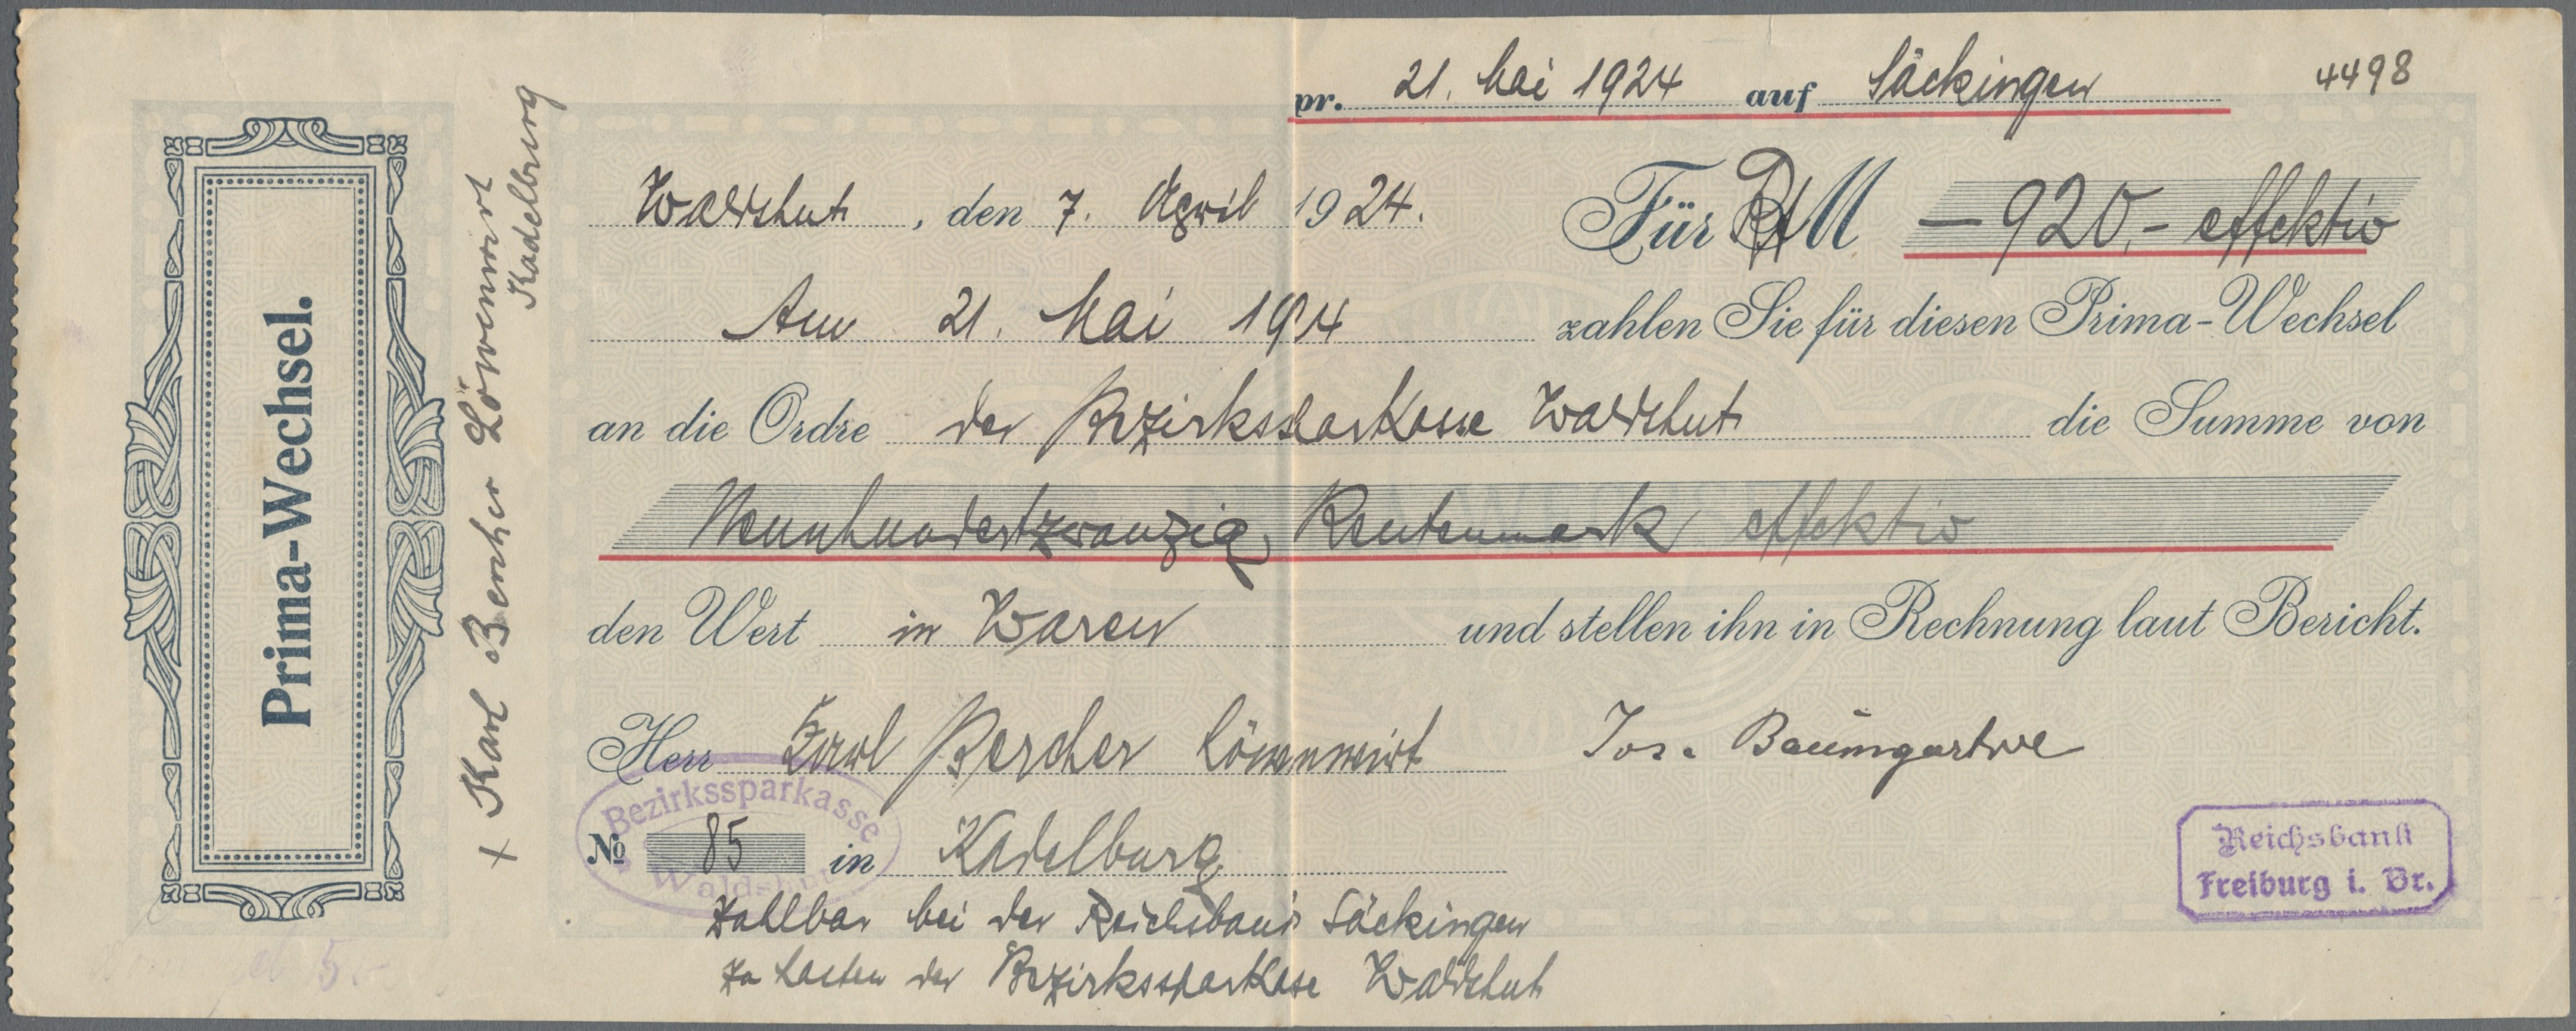 pr. 21. Mai 1924 auf Säckingen
4498
Waldshut, den 7. April 1924.
Für RM — 920,- effektiv
Am 21. Mai 1924 zahlen Sie für diesen Prima-Wechsel
an die Ordre der Bezirkssparkasse Waldshut die Summe von
Neunhundertzwanzig Rentenmark effektiv
den Wert in Waren und stellen ihn in Rechnung laut Bericht.
Herr Karl Bercher Löwenwirt
Jos. Baumgartner
No 85 in Kadelburg
Zahlbar bei der Reichsbank Säckingen
zu Lasten der Bezirkssparkasse Waldshut
Prima-Wechsel.
+ Karl Bercher Löwenwirt
Kadelburg
Bezirkssparkasse
Waldshut
Reichsbank
Freiburg i. Br.